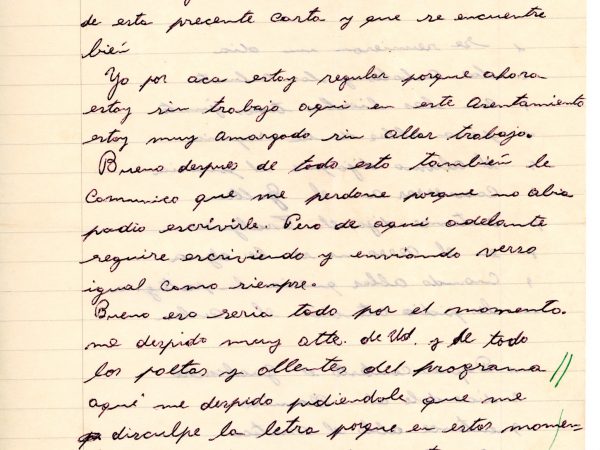 de esta precente carta y que se encuentre
bién
Yo por aca estoy regular porque ahora
estoy sin trabajo aqui en este asentamiento
estoy muy amargado sin allar trabajo.
Bueno despues de todo esto también le
comunico que me perdone porque no abia
padio escrivirle. Pero de aqui adelante
reguire escriviendo y enviando verso
igual como siempre.
Bueno eso seria todo por el momento.
me despido muy atte. de Ud. y de todo
los poetas y ollentes del programa //
aqui me despido pidiendole que me
disculpe la letra porque en estos momen-